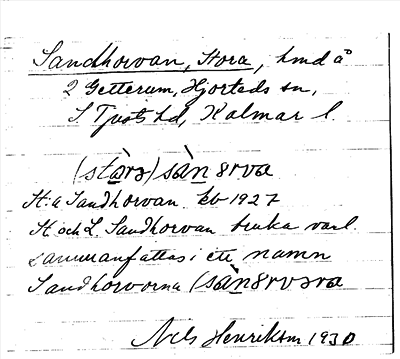 Sandhorvan, Stora, hmd å
2 Getterum, Hjorteds sn,
S. Tjusts hd, Kalmar l.
(stòrạ) sàn ørva
St:a Sandhorvan kb 1927
St och L. Sandhorvan bruka vanl.
sammanfattas i ett namn
Sandhorvorna (sànørvəra
Nils Henrikson 1930